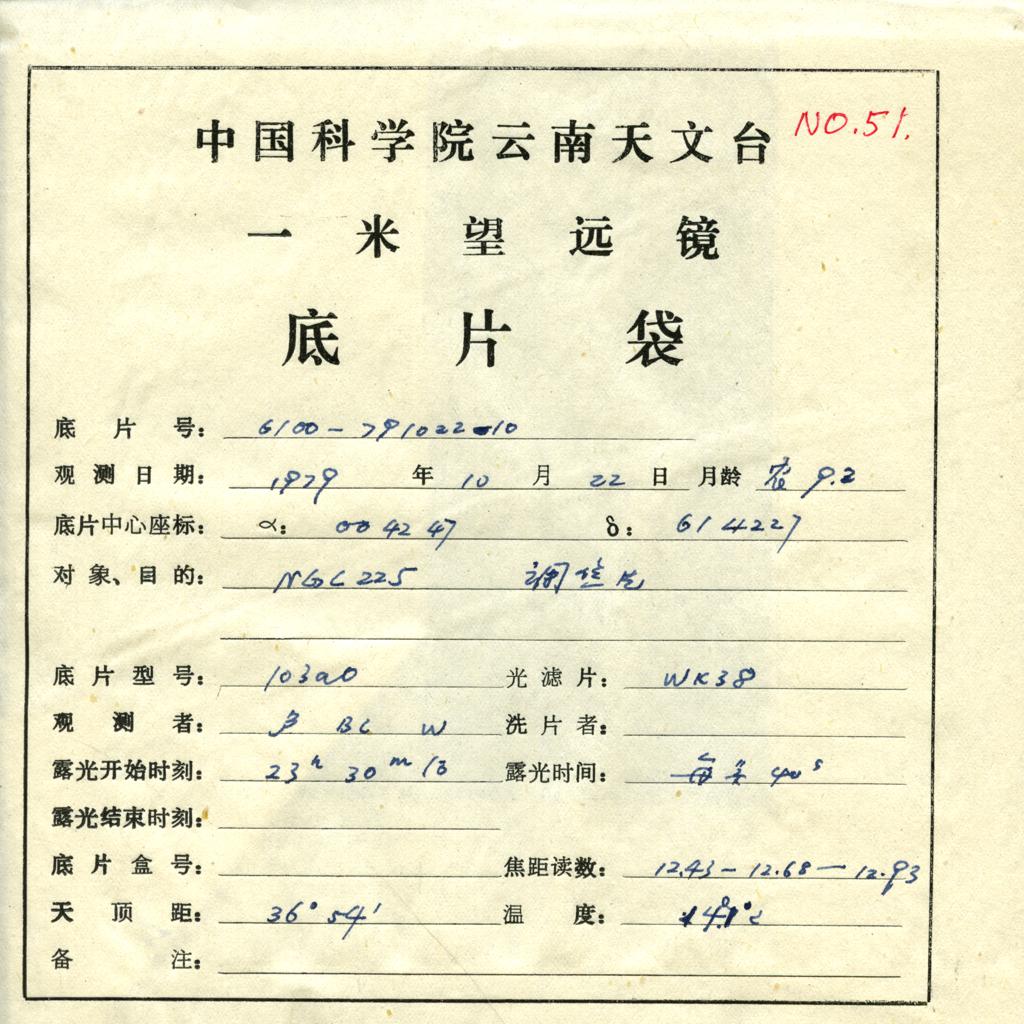 NO.51.
中国科学院云南天文台
一米望远镜
底片袋
底片号： 6100-791022-10
观测日期： 1979 年 10 月 22 日 月龄 农 9.2
底片中心座标： α： 00 42 47 δ： 61 42 27
对象、目的： NGC 225 调焦片
底片型号： 103aO 光滤片： WK38
观测者： BC W 洗片者：
露光开始时刻： 23h 30m 露光时间： 每 40s
露光结束时刻：
底片盒号： 焦距读数： 12.43 - 12.68 - 12.93
天顶距： 36° 54′ 温度：
备注：